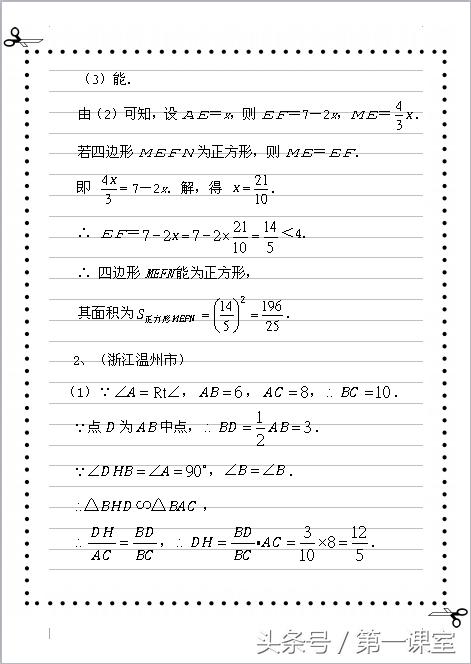 （3）能．
由（2）可知，设 AE＝x，则 EF＝7－2x，ME＝4/3 x．
若四边形 MEFN 为正方形，则 ME＝EF．
即 4x/3＝7－2x．解，得 x＝21/10．
∴ EF＝7－2x＝7－2×21/10＝14/5＜4．
∴ 四边形 MEFN能为正方形，
其面积为 S正方形MEFN＝(14/5)²＝196/25．
2、（浙江温州市）
（1）∵ ∠A＝Rt∠，AB＝6，AC＝8，∴ BC＝10．
∵点 D 为 AB 中点，∴ BD＝1/2 AB＝3．
∵∠DHB＝∠A＝90°，∠B＝∠B．
∴△BHD∽△BAC，
∴ DH/AC＝BD/BC，∴ DH＝BD/BC•AC＝3/10×8＝12/5．
头条号 / 第一课堂